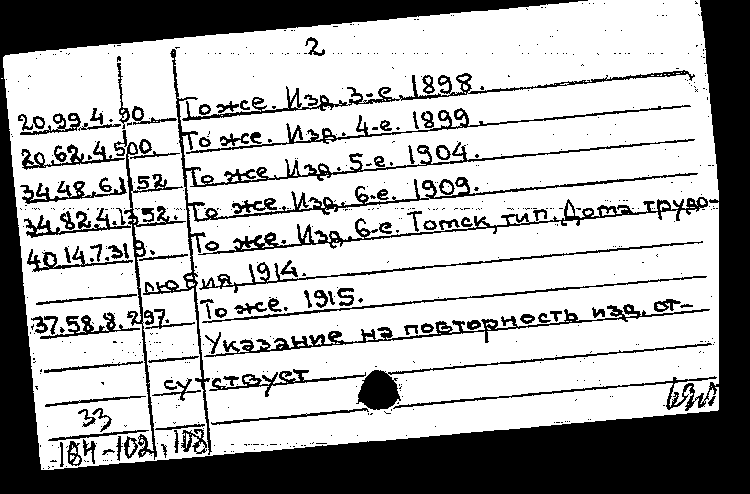 2
20.99.4.90. То же. Изд. 3-е. 1898.
20.62.4.500. То же. Изд. 4-е. 1899.
34.48.6.1152 То же. Изд. 5-е. 1904.
34.82.4.1352. То же. Изд. 6-е. 1909.
40.14.7.319. То же. Изд. 6-е. Томск, тип. Дома трудо-
любия, 1914.
37.58.8.297. То же. 1915.
Указание на повторность изд. от-
сутствует
33
184-102,108